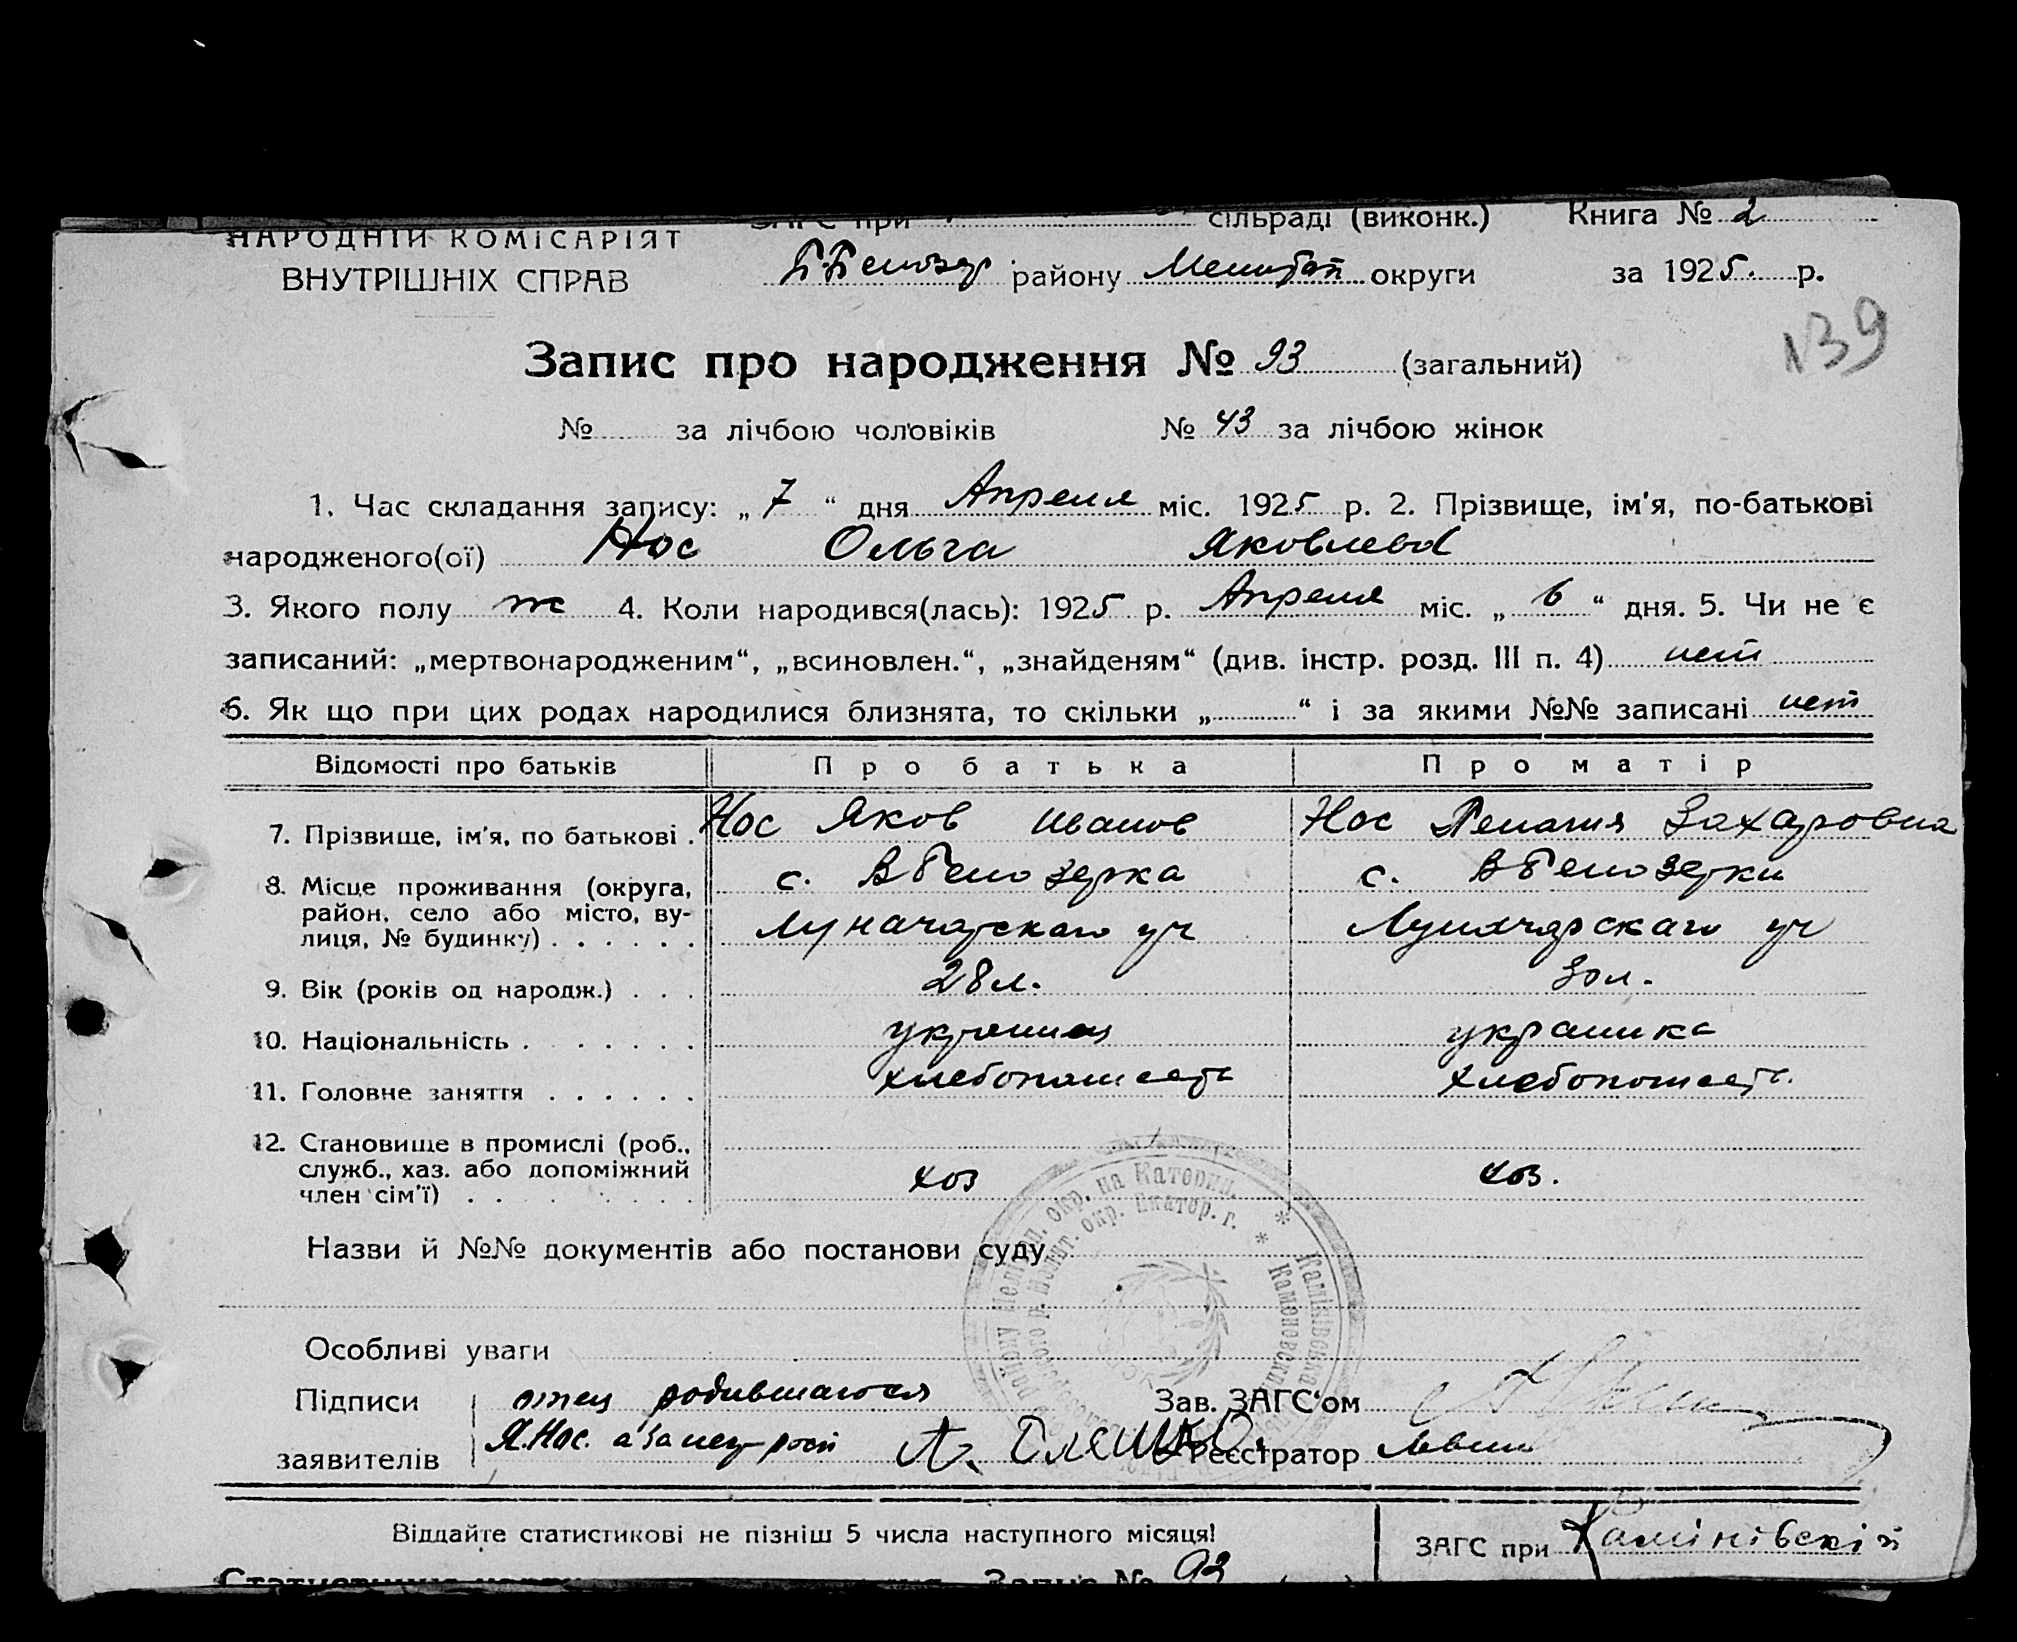 НАРОДНІЙ КОМІСАРІЯТ
ВНУТРІШНІХ СПРАВ
ЗАГС при сільраді (виконк.) Книга № 2
Б. Белозер району Мелитоп округи за 1925. р.
139
Запис про народження № 93 (загальний)
№ за лічбою чоловіків № 43 за лічбою жінок
1. Час складання запису: „ 7 “ дня Апреля міс. 1925 р. 2. Прізвище, ім'я, по-батькові
народженого(ої) Нос Ольга Яковлева
3. Якого полу ж 4. Коли народився(лась): 1925 р. Апреля міс. „ 6 “ дня. 5. Чи не є
записаний: „мертвонародженим“, „всиновлен.“, „знайденям“ (див. інстр. розд. III п. 4) нет
6. Як що при цих родах народилися близнята, то скільки „ “ і за якими №№ записані нет
Відомості про батьків Про батька Про матір
7. Прізвище, ім'я, по батькові . Нос Яков Иванов Нос Пелагия Захаровна
8. Місце проживання (округа, с. В Белозерка с. В Белозерки
район, село або місто, ву-
лиця, № будинку) . . . . . . Луначарскаго уч Луначарскаго уч
9. Вік (років од народж.) . . . 28 л. 30 л.
10. Національність . . . . . . . украинец украинка
11. Головне заняття . . . . . . хлебопашест хлебопашест.
12. Становище в промислі (роб.,
служб., хаз. або допоміжний хоз хоз.
член сім'ї) . . . . . . . .
Назви й №№ документів або постанови суду
Особливі уваги
Підписи отец родившагося Зав. ЗАГС'ом
заявителів Я. Нос. а за негр росп Реєстратор
Віддайте статистикові не пізніш 5 числа наступного місяця!
ЗАГС при Камінівскій
Запис № 93